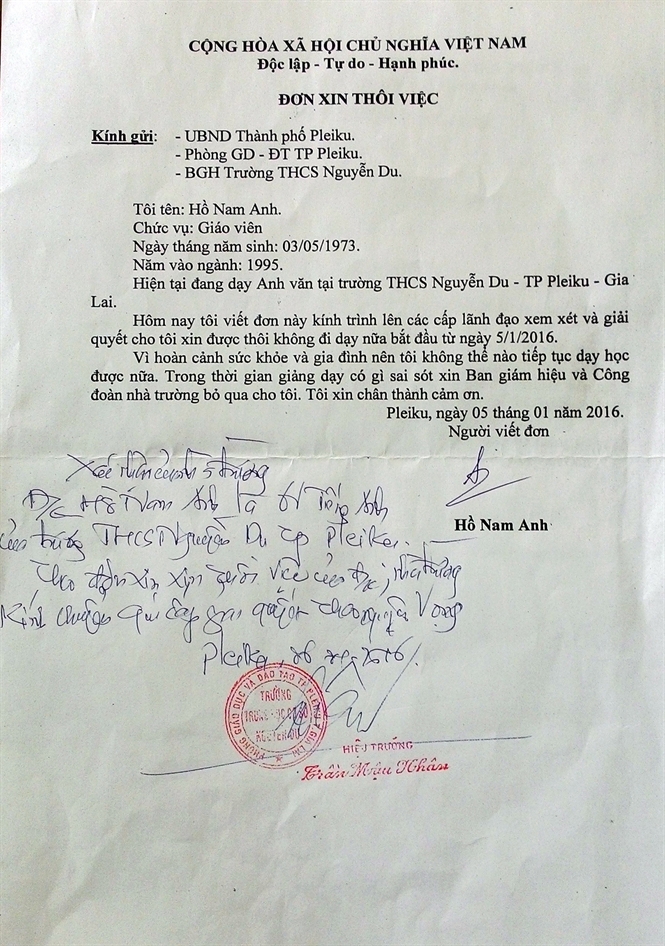 CỘNG HÒA XÃ HỘI CHỦ NGHĨA VIỆT NAM
Độc lập - Tự do - Hạnh phúc.
ĐƠN XIN THÔI VIỆC
Kính gửi: - UBND Thành phố Pleiku.
- Phòng GD - ĐT TP Pleiku.
- BGH Trường THCS Nguyễn Du.
Tôi tên: Hồ Nam Anh.
Chức vụ: Giáo viên
Ngày tháng năm sinh: 03/05/1973.
Năm vào ngành: 1995.
Hiện tại đang dạy Anh văn tại trường THCS Nguyễn Du - TP Pleiku - Gia
Lai.
Hôm nay tôi viết đơn này kính trình lên các cấp lãnh đạo xem xét và giải
quyết cho tôi xin được thôi không đi dạy nữa bắt đầu từ ngày 5/1/2016.
Vì hoàn cảnh sức khỏe và gia đình nên tôi không thể nào tiếp tục dạy học
được nữa. Trong thời gian giảng dạy có gì sai sót xin Ban giám hiệu và Công
đoàn nhà trường bỏ qua cho tôi. Tôi xin chân thành cảm ơn.
Pleiku, ngày 05 tháng 01 năm 2016.
Người viết đơn
Hồ Nam Anh
Xác nhận của nhà trường
Đ/c Hồ Nam Anh là GV Tiếng Anh
của trường THCS Nguyễn Du TP Pleiku.
Theo đơn xin thôi việc của đ/c, nhà trường
Kính chuyển quí cấp giải quyết theo nguyện vọng
Pleiku,
PHÒNG GIÁO DỤC VÀ ĐÀO TẠO TP PLEIKU T GIA LAI
TRƯỜNG
TRUNG HỌC CƠ SỞ
NGUYỄN DU
HIỆU TRƯỞNG
Trần Mậu Nhân